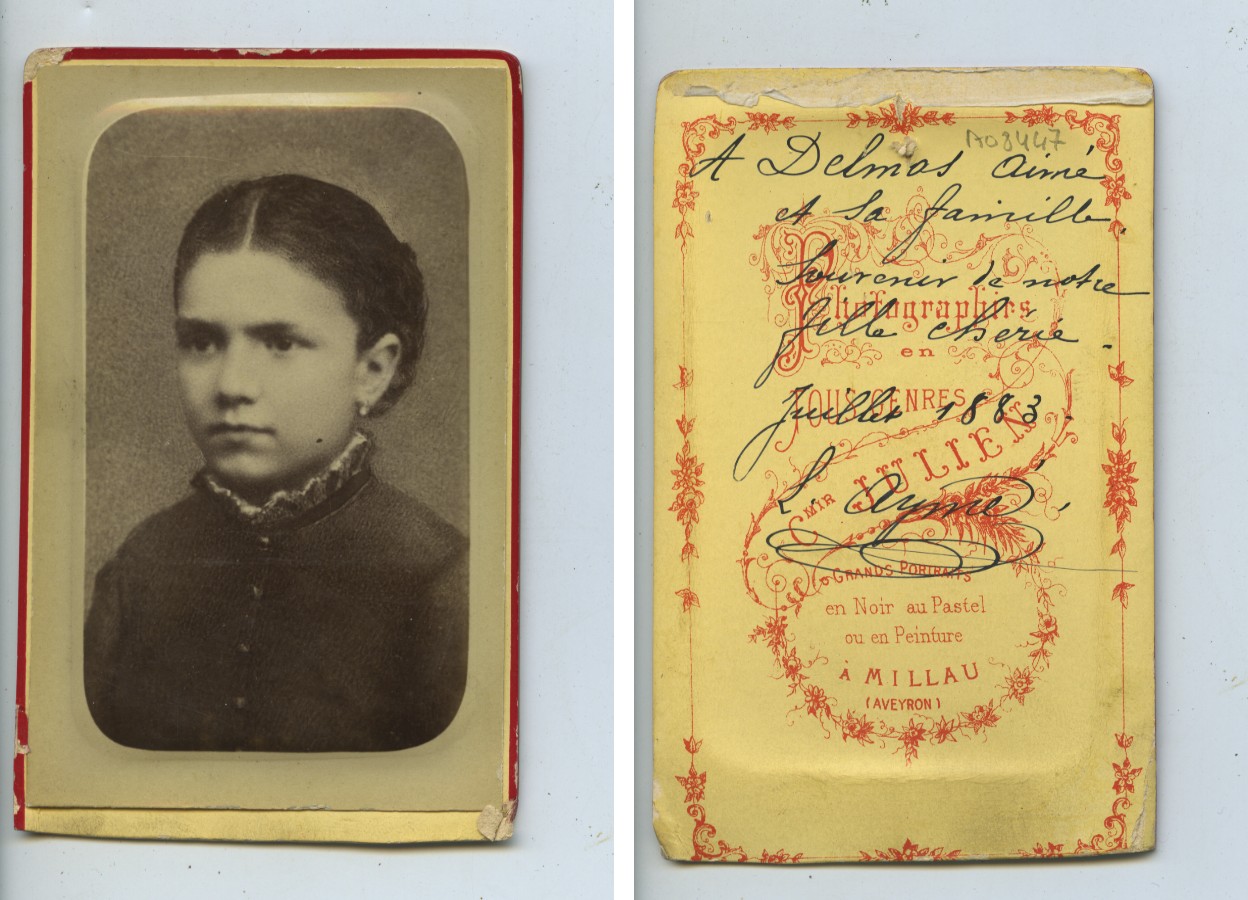 A08447
A Delmas Aimé
et sa famille.
Souvenir de notre
fille chérie.
Juillet 1883.
L. Aymé.
Photographies
en
TOUS GENRES
CMIR JULIEN
GRANDS PORTRAITS
en Noir au Pastel
ou en Peinture
À MILLAU
(AVEYRON)